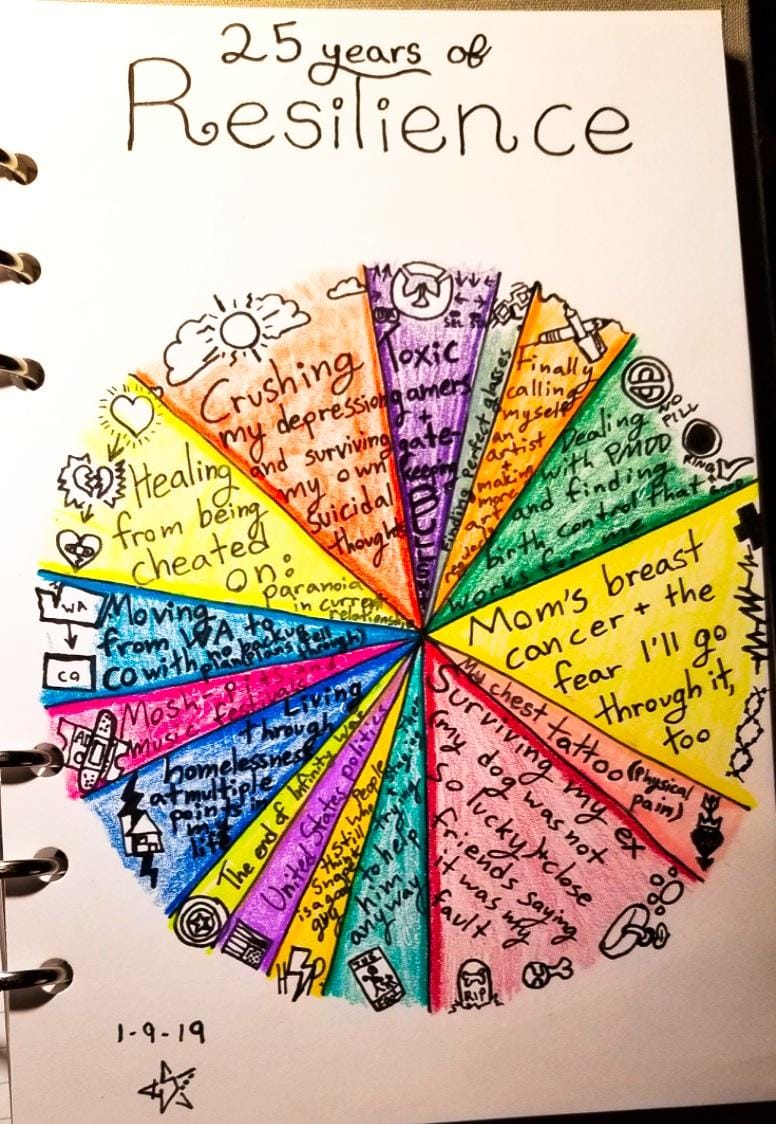 25 years of
Resilience
Toxic
gamers
+
gate-
keeping
Finding perfect glasses
Finally
calling
myself
an
artist
+
making
more
art
nowadays
Dealing
with PMDD
and finding
birth control that
works for me
NO
PILL
RING
Mom's breast
cancer + the
fear I'll go
through it,
too
My chest tattoo (Physical
pain)
Surviving my ex
(my dog was not
so lucky) + close
friends saying
it was my
fault
trying
to help
him
anyway
THE
RIP
People
who
still
think
Snape
is a good
guy
HP
United States politics
The end of Infinity War
Living
through
homelessness
at multiple
points in
my
life
Mosh-pits and
music festivals
Moving
from WA to
CO with no backup
plan
WA
CO
Healing
from being
cheated
on:
paranoia
in current
relationship
Crushing
my depression
and surviving
my own
suicidal
thoughts
1-9-19